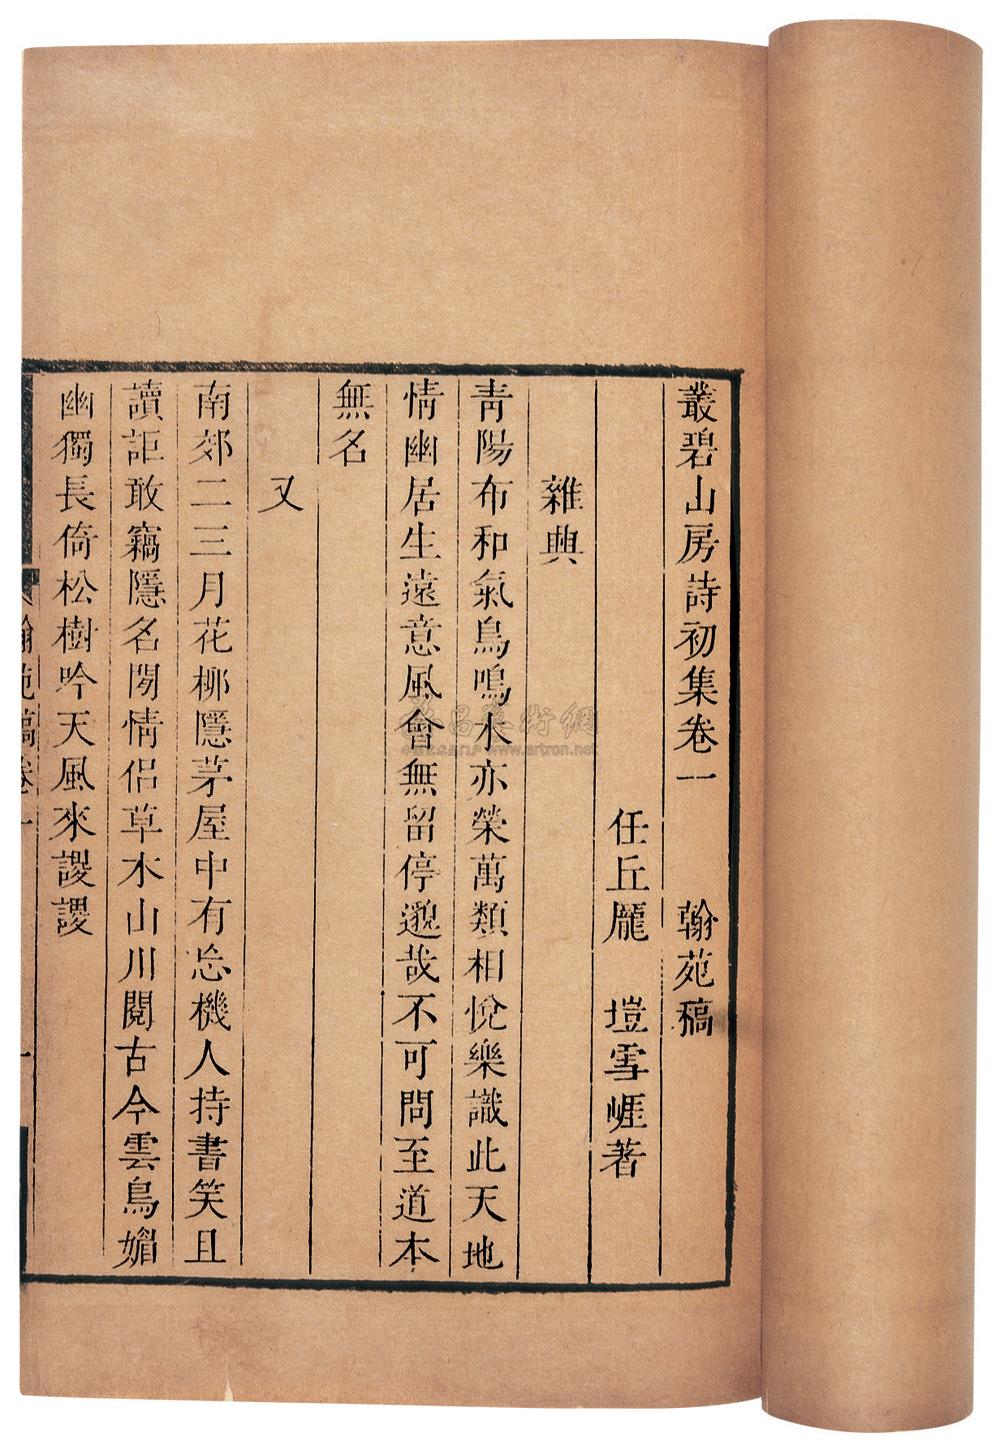 叢碧山房詩初集卷一　翰苑稿
任丘龎　塏雪崕著
雜興
靑陽布和氣鳥鳴木亦榮萬類相悅樂識此天地
情幽居生遠意風會無留停邈哉不可問至道本
無名
又
南郊二三月花栁隱茅屋中有忘機人持書笑且
讀詎敢竊隱名閒情侶草木山川閱古今雲鳥媚
幽獨長倚松樹吟天風來謖謖
翰苑稿卷一
一
www.artron.net